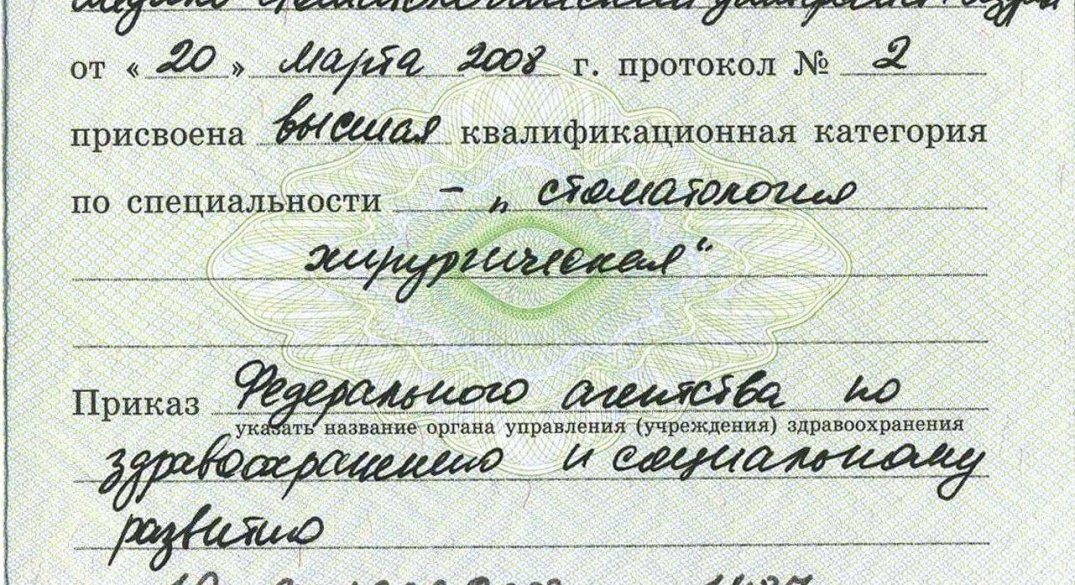 от «20» марта 2008 г. протокол № 2
присвоена высшая квалификационная категория
по специальности – „стоматология
хирургическая“
Приказ Федерального агентства по
указать название органа управления (учреждения) здравоохранения
здравоохранению и социальному
развитию